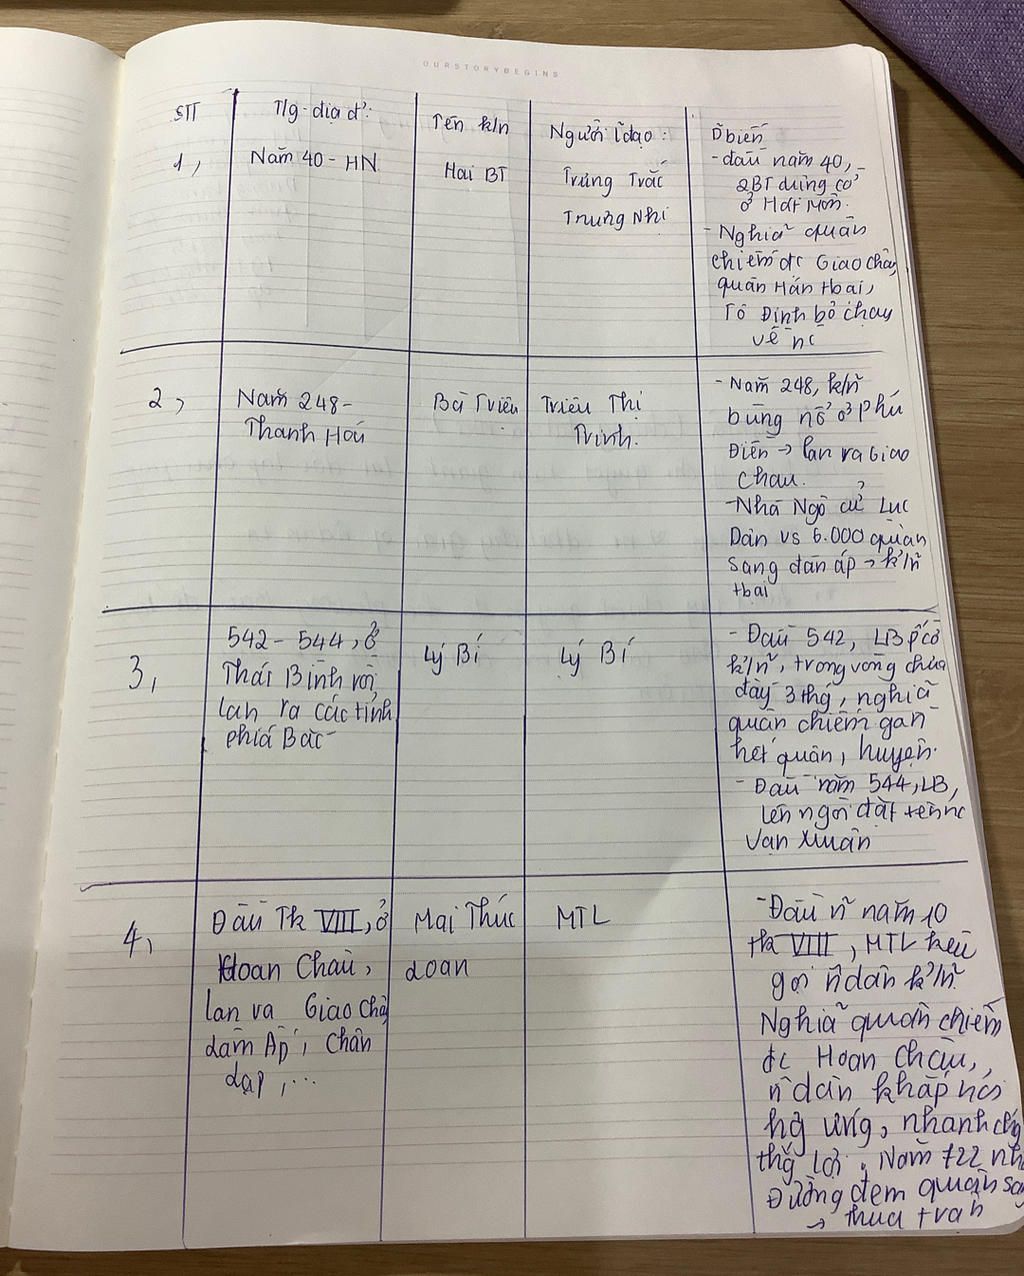 OURSTORYBEGINS
STT
T/g - địa đ':
Tên k/n
Người lđạo:
Dbiến
1,
Năm 40 - HN.
Hai BT
Trưng Trắc
Trưng Nhị
- đầu năm 40,
2BT dựng cờ
ở Hát Môn.
- Nghĩa quân
chiếm đc Giao châu,
quân Hán tbại,
Tô Định bỏ chạy
về nc
2,
Năm 248 -
Thanh Hoá
Bà Triệu
Triệu Thị
Trinh.
- Năm 248, k/n
bùng nổ ở Phú
Điền → lan ra Giao
Châu.
- Nhà Ngô cử Lục
Dận vs 6.000 quân
sang đàn áp → k/n
tbại
3,
542 - 544, ở
Thái Bình rồi,
lan ra các tỉnh
phía Bắc
Lý Bí
Lý Bí
- Đầu 542, LB pcờ
k/n, trong vòng chưa
đầy 3 thg, nghĩa
quân chiếm gần
hết quận, huyện.
- Đầu năm 544, LB,
lên ngôi đặt tên nc
Vạn Xuân
4,
Đầu Tk VIII, ở
Hoan Châu,
lan ra Giao Châu
dam Ap, Chân
dạp,...
Mai Thúc
Loan
MTL
- Đầu n~ năm 10
tk VIII, MTL kêu
gọi ndân k/n
Nghĩa quân chiếm
đc Hoan Châu,
ndân khắp nơi
hg ứng, nhanh chg
thg lợi. Năm 722 nhà
Đường đem quân sang
→ thua trận